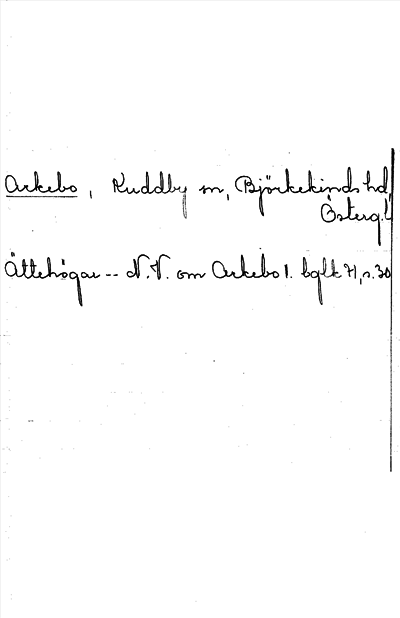 Arkebo, Kuddby sn, Björkekinds hd,
Österg. l.
Ättehögar -- N.V. om Arkebo l. bglk 71, s. 30